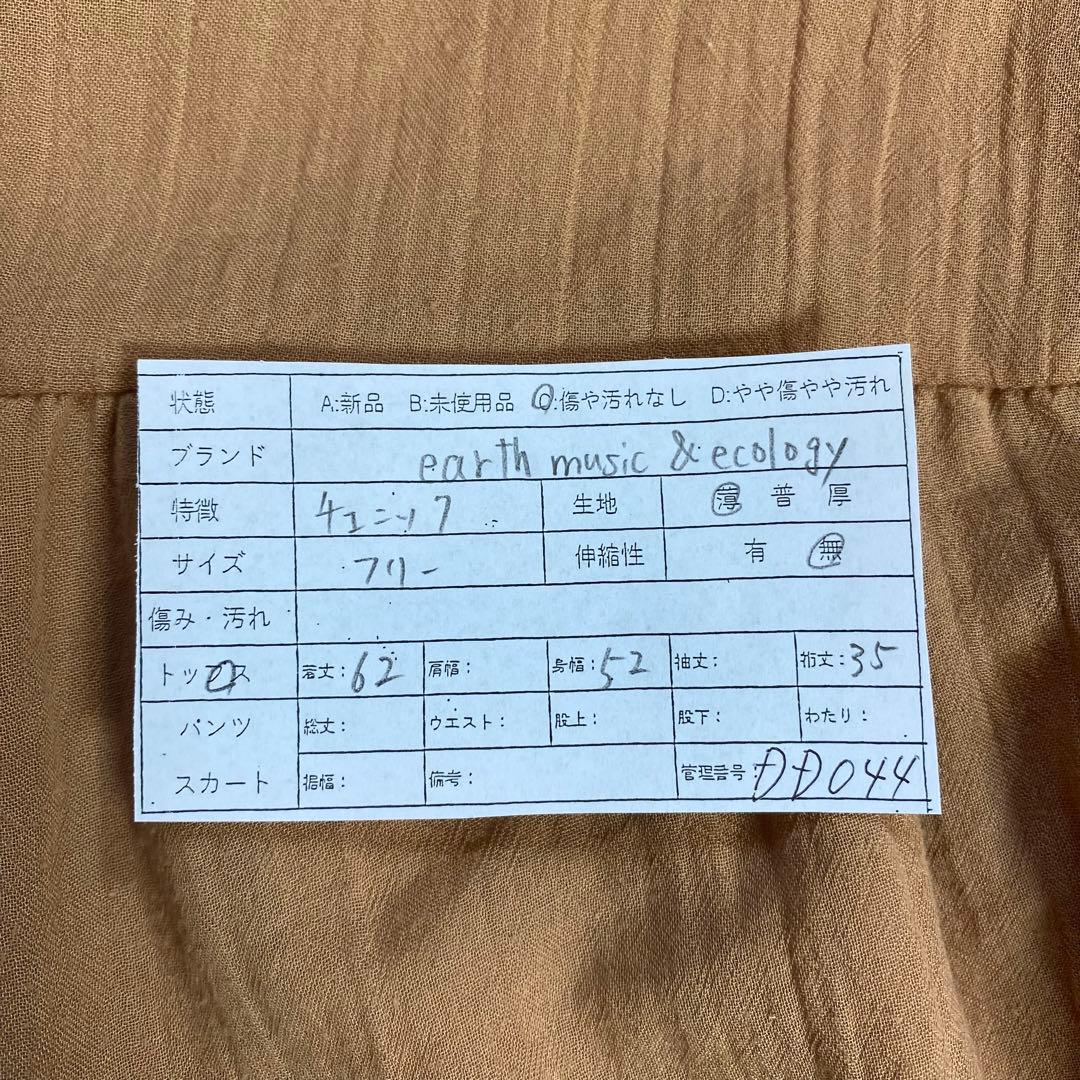 状態 A:新品 B:未使用品 C:傷や汚れなし D:やや傷やや汚れ
ブランド earth music & ecology
特徴 チュニック 生地 薄 普 厚
サイズ フリー 伸縮性 有 無
傷み・汚れ
トップス 着丈:62 肩幅: 身幅:52 袖丈: 裄丈:35
パンツ 総丈: ウエスト: 股上: 股下: わたり:
スカート 裾幅: 備考: 管理番号:DD044